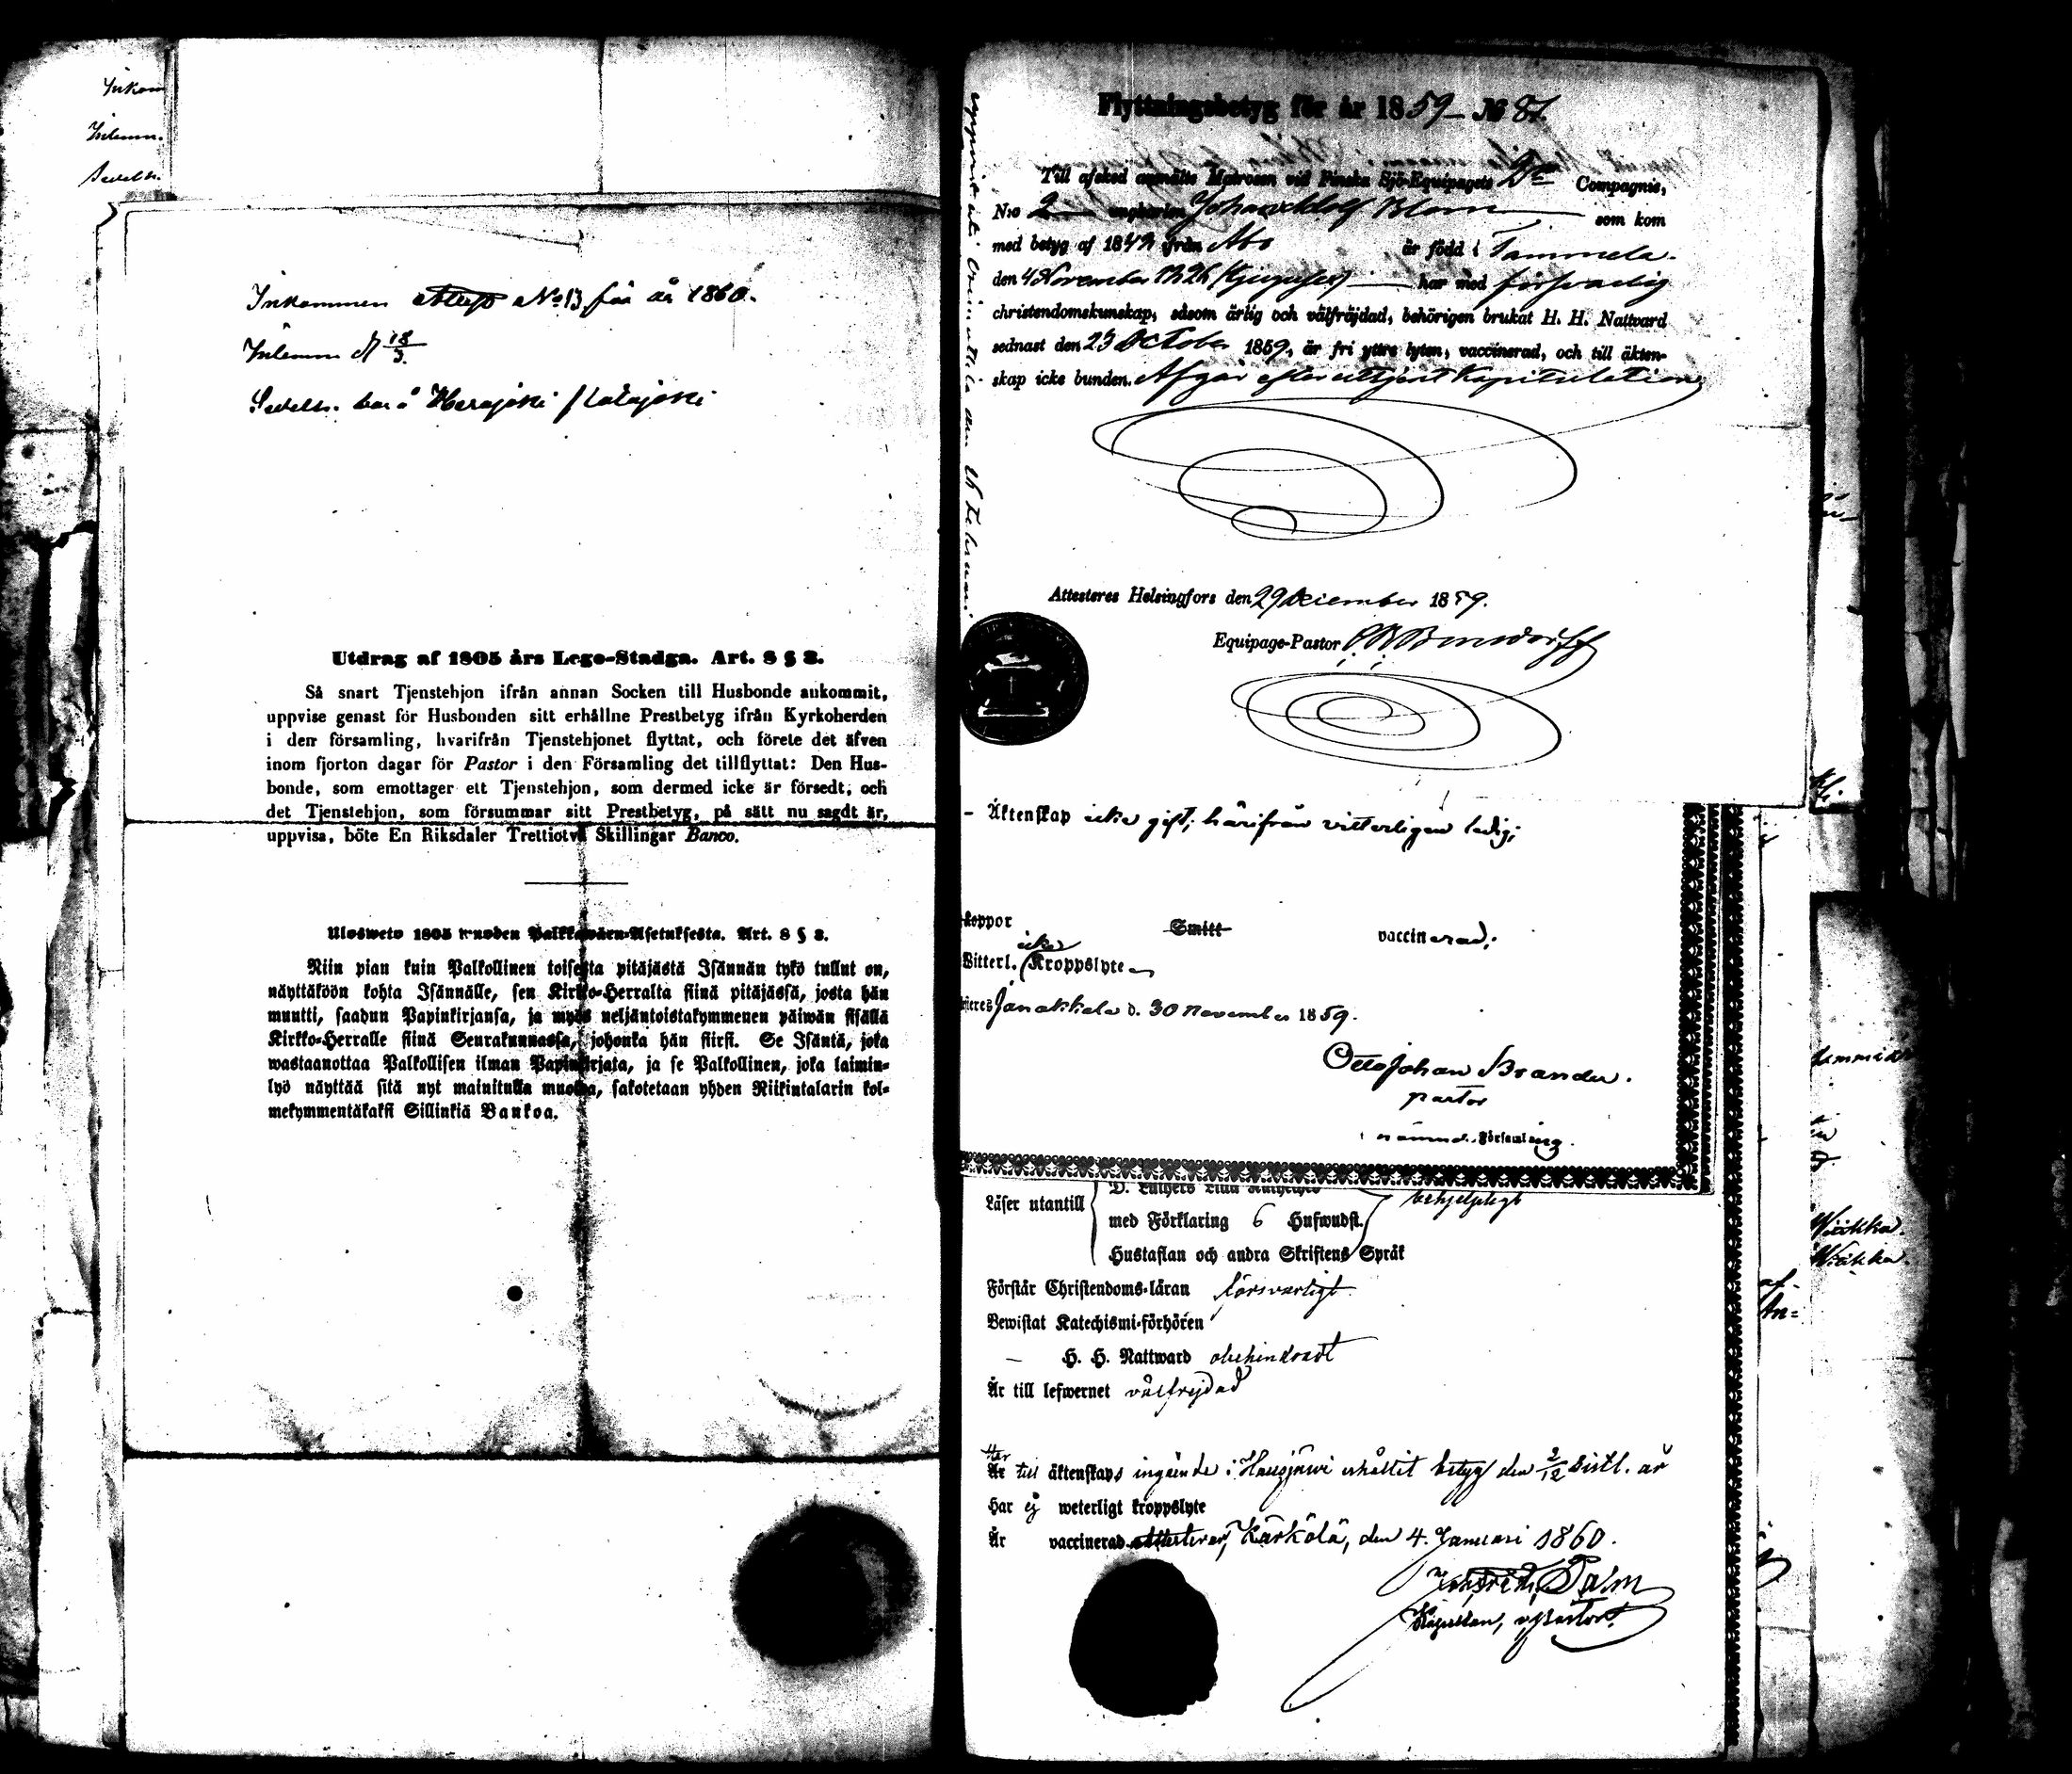 Inkom
Inlemn.
Sedeln.
Inkommen Attest No 13 för år 1860.
Inlemn d 18/3.
Sedeln. bar å Herajoki / Ratajoki
Utdrag af 1805 års Lego-Stadga. Art. 8 § 8.
Så snart Tjenstehjon ifrån annan Socken till Husbonde ankommit,
uppvise genast för Husbonden sitt erhållne Prestbetyg ifrån Kyrkoherden
i den församling, hvarifrån Tjenstehjonet flyttat, och förete det äfven
inom fjorton dagar för Pastor i den Församling det tillflyttat: Den Hus-
bonde, som emottager ett Tjenstehjon, som dermed icke är försedt, och
det Tjenstehjon, som försummar sitt Prestbetyg, på sätt nu sagdt är,
uppvisa, böte En Riksdaler Trettiotvå Skillingar Banco.
Ulosweto 1805 wuoden Palkkawäen-Asetuksesta. Art. 8 § 8.
Niin pian kuin Palkollinen toisesta pitäjästä Isännän tykö tullut on,
näyttäköön kohta Isännälle, sen Kirkko-Herralta siinä pitäjässä, josta hän
muutti, saadun Papinkirjansa, ja myös neljäntoistakymmenen päiwän sisällä
Kirkko-Herralle siinä Seurakunnassa, johonka hän siirsi. Se Isäntä, joka
wastaanottaa Palkollisen ilman Papinkirjata, ja se Palkollinen, joka laimin-
lyö näyttää sitä nyt mainitulla muotoa, sakotetaan yhden Riikintalarin kol-
mekymmentäkaksi Sillinkiä Bankoa.
Flyttningsbetyg för år 1859 No 81.
Till afsked anmälte Matrosen vid Finska Sjö-Equipagets 2dra Compagnie,
N:o 2 ungkarlen Johan Adolf Blom som kom
med betyg af 1842 ifrån Åbo är född i Tammela.
den 4 November 1826 har med försvarlig
christendomskunskap, såsom ärlig och välfräjdad, behörigen brukat H. H. Nattvard
sednast den 23 October 1859, är fri yttre lyten, vaccinerad, och till äkten-
skap icke bunden. Afgår efter uttjent Kapitulation
Attesteras Helsingfors den 29 December 1859.
Equipage-Pastor
Äktenskap icke gift, härifrån vitterligen ledig;
koppor Smitt vaccinerad;
icke
Witterl. Kroppslyte
Janakkala d. 30 November 1859.
Otto Johan Brander.
pastor
nämnde Församling.
Läser utantill
D. Luthers Lilla Katheches behjelpligt
med Förklaring 6 Hufwudst.
Hustaflan och andra Skriftens Språk
Förstår Christendoms-läran försvarligt
Bewistat Katechismi-förhören
— H. H. Nattward obehindradt
Är till lefwernet välfrejdad
Har
Är till äktenskaps ingående i Hausjärvi erhållit betyg den 2/12 sistl. år
Har ej weterligt kroppslyte
Är vaccinerad attesterar, Kärkölä, den 4. Januari 1860.
Kapellan, v. Pastor.